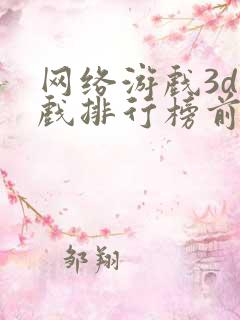 网络游戏3d
戏排行榜前
邹翔